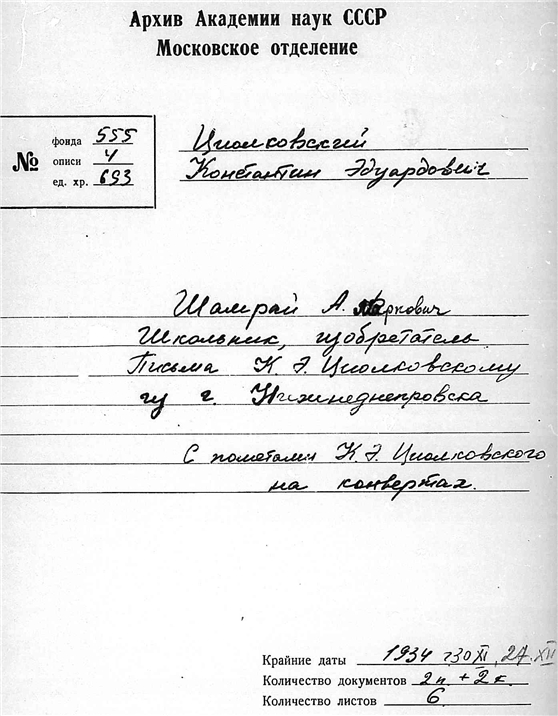 Архив Академии наук СССР
Московское отделение
№
фонда 555
описи 4
ед. хр. 693
Циолковский
Константин Эдуардович
Шамрай А. Маркович
Школьник, изобретатель
Письма К. Э. Циолковскому
из г. Нижнеднепровска
С пометами К. Э. Циолковского
на конвертах.
Крайние даты 1934 г 30 XI, 27. XII
Количество документов 2п. + 2к.
Количество листов 6